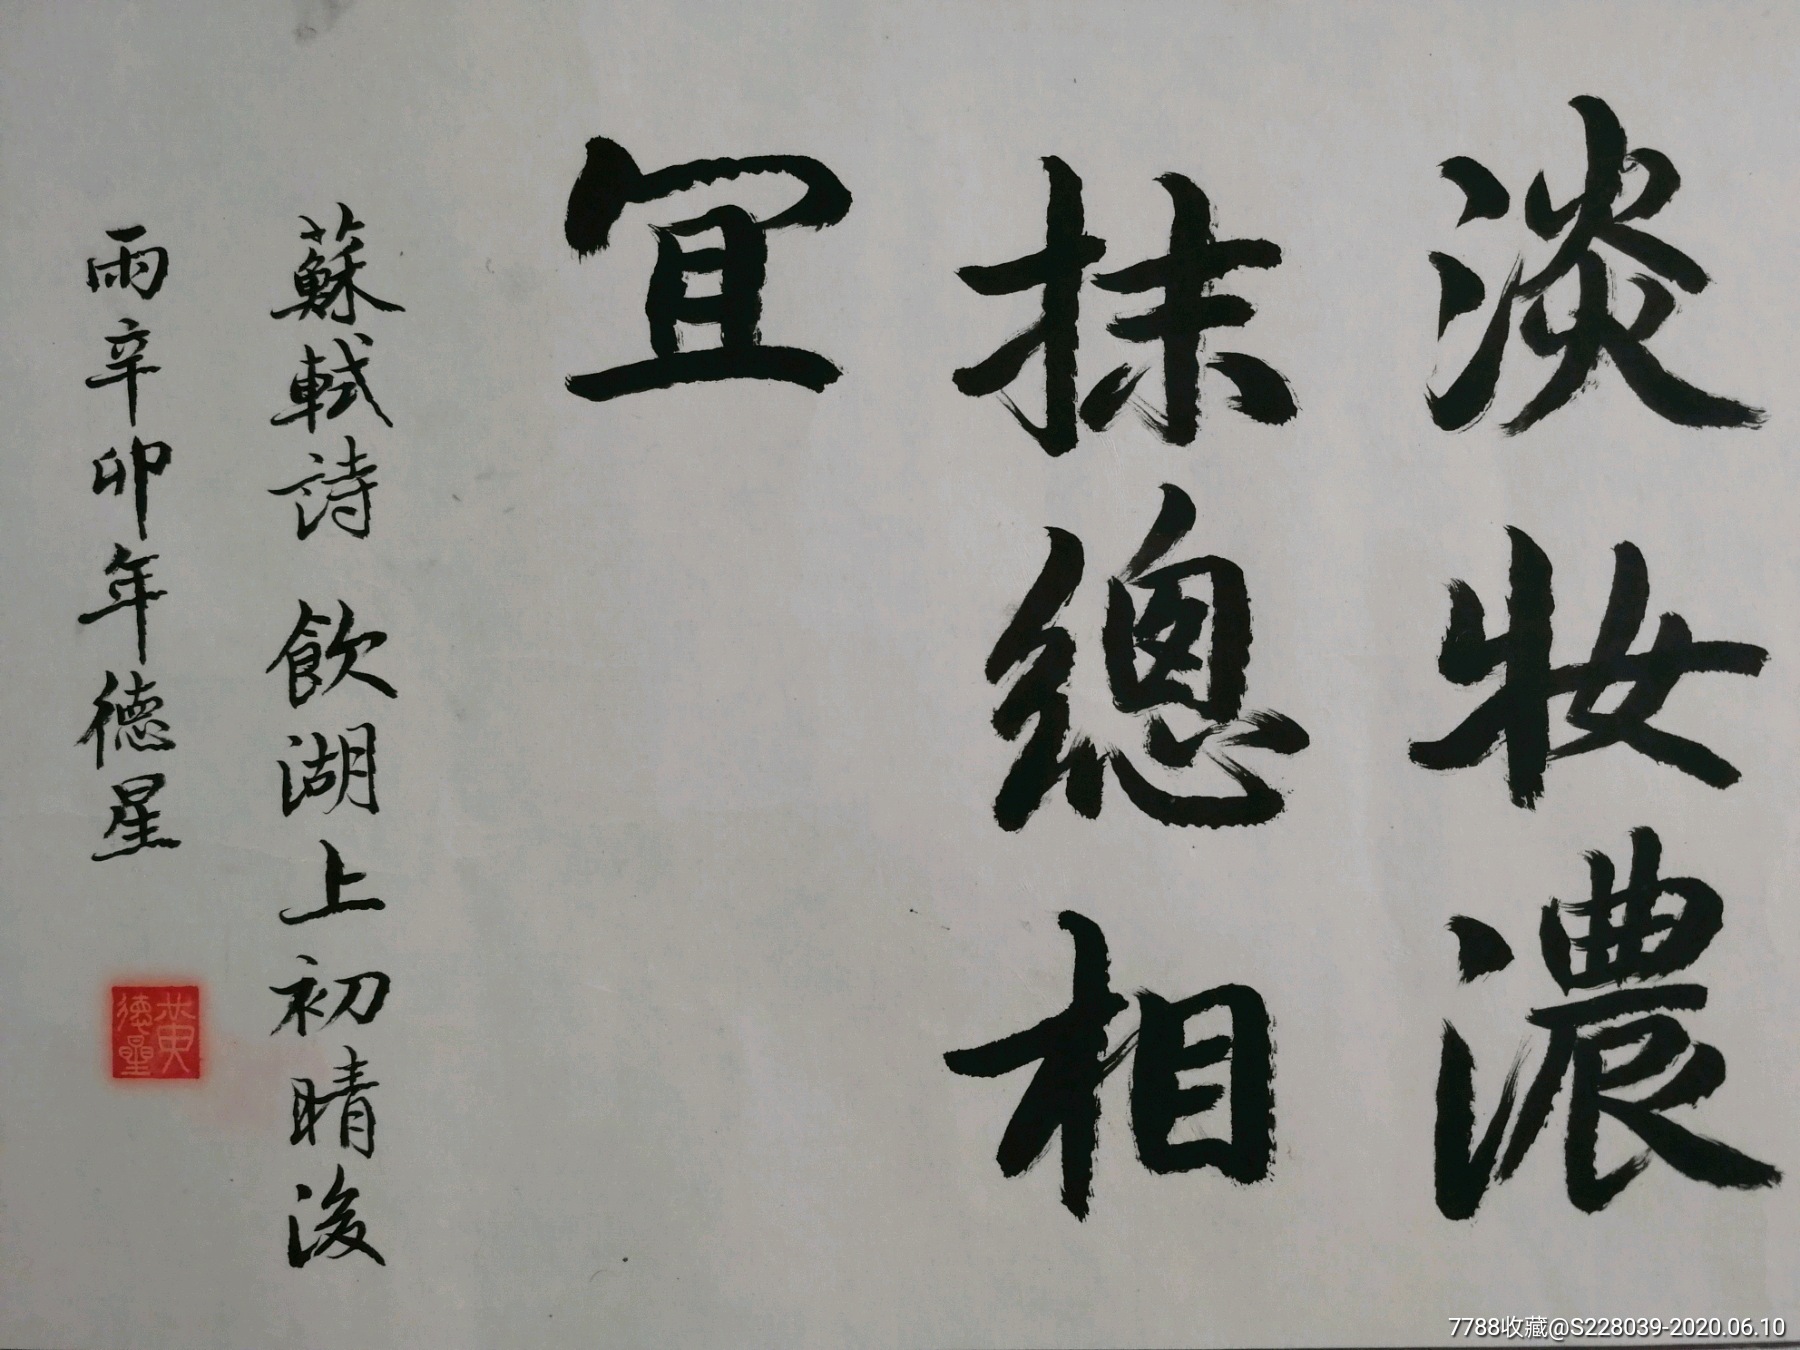 淡妝濃
抹總相
冝
蘇軾詩 飲湖上初晴後
雨辛卯年德星
黄德星
7788收藏@S228039-2020.06.10